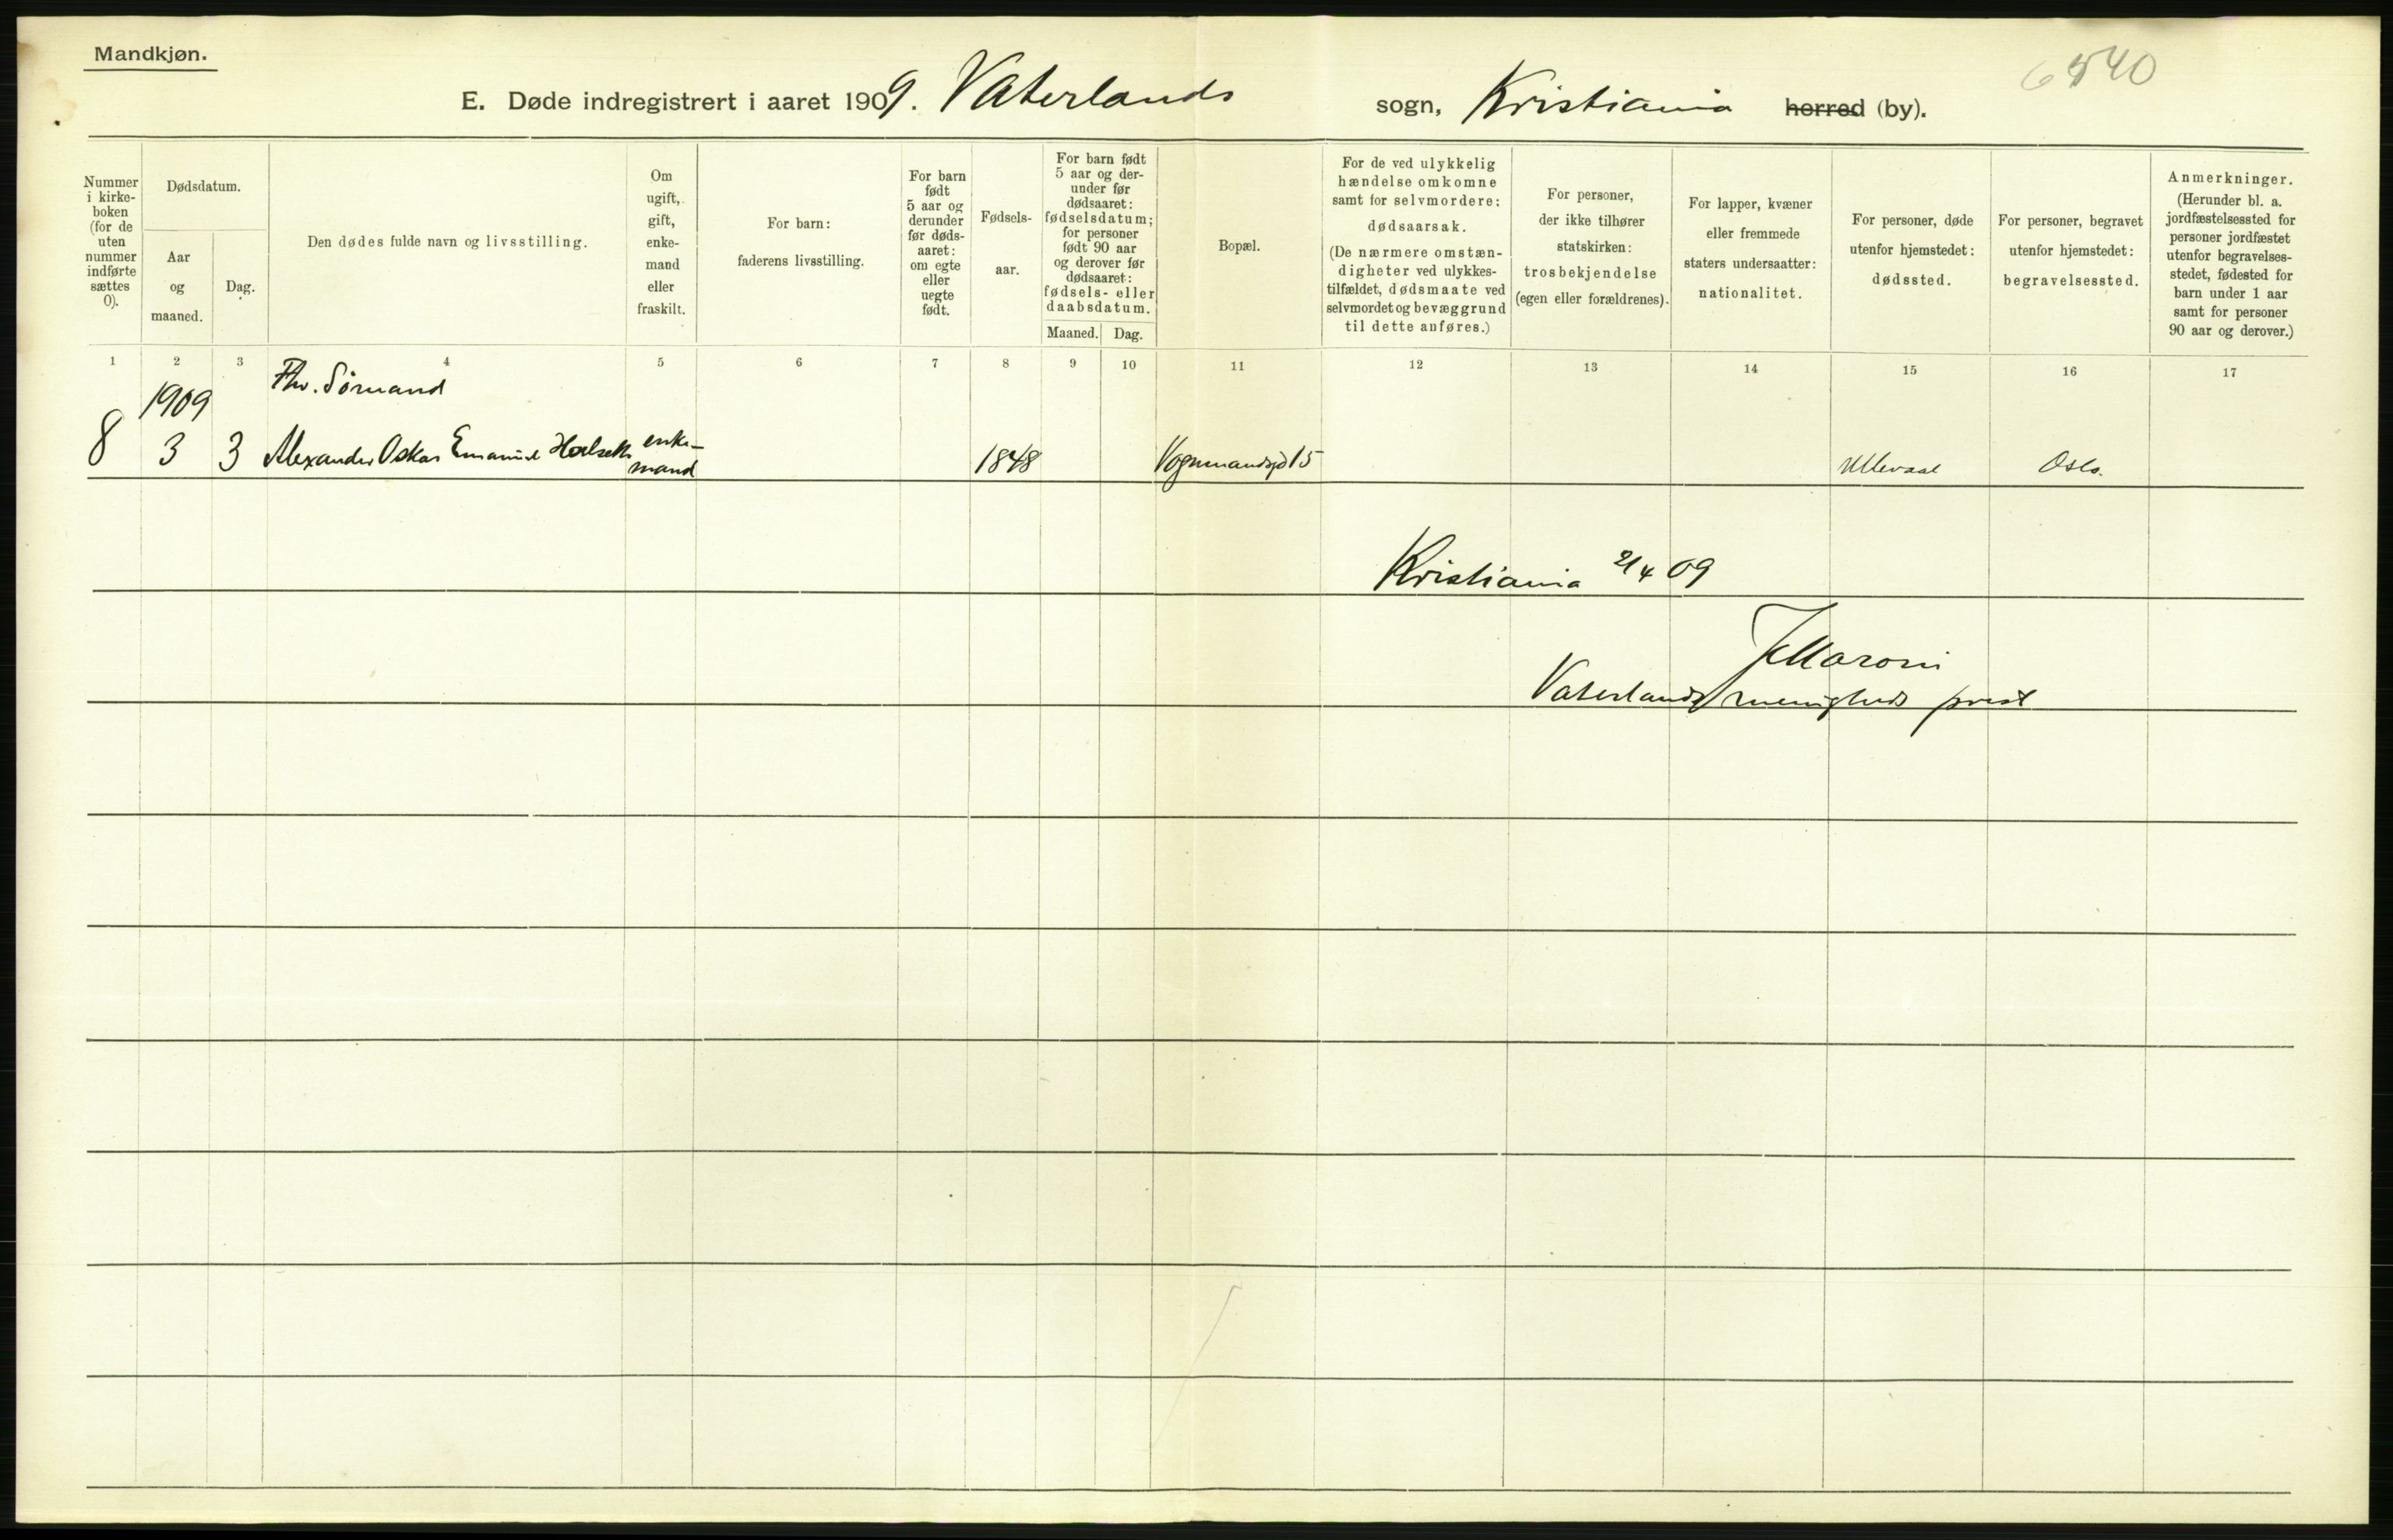 Mandkjøn.
6540
E. Døde indregistrert i aaret 1909. Vaterlands sogn, Kristiania herred (by).
Nummer i kirke-boken (for de uten nummer indførte sættes 0).
Dødsdatum.
Aar og maaned.
Dag.
Den dødes fulde navn og livsstilling.
Om ugift, gift, enke-mand eller fraskilt.
For barn: faderens livsstilling.
For barn født 5 aar og derunder før døds-aaret: om egte eller uegte født.
Fødsels-aar.
For barn født 5 aar og der-under før dødsaaret: fødselsdatum; for personer født 90 aar og derover før dødsaaret: fødsels- eller daabsdatum.
Maaned. Dag.
Bopæl.
For de ved ulykkelig hændelse omkomne samt for selvmordere: dødsaarsak. (De nærmere omstæn-digheter ved ulykkes-tilfældet, dødsmaate ved selvmordet og bevæggrund til dette anføres.)
For personer, der ikke tilhører statskirken: trosbekjendelse (egen eller forældrenes).
For lapper, kvæner eller fremmede staters undersaatter: nationalitet.
For personer, døde utenfor hjemstedet: dødssted.
For personer, begravet utenfor hjemstedet: begravelsessted.
Anmerkninger. (Herunder bl. a. jordfæstelsessted for personer jordfæstet utenfor begravelses-stedet, fødested for barn under 1 aar samt for personer 90 aar og derover.)
1 2 3 4 5 6 7 8 9 10 11 12 13 14 15 16 17
1909 Fhv. Sømand
8 3 3 Alexander Oskar Emanuel enke-mand 1848 Vognmandsgd 15 Ullevaal Oslo.
Kristiania 21/4 09
Maroni
Vaterlands menigheds prest